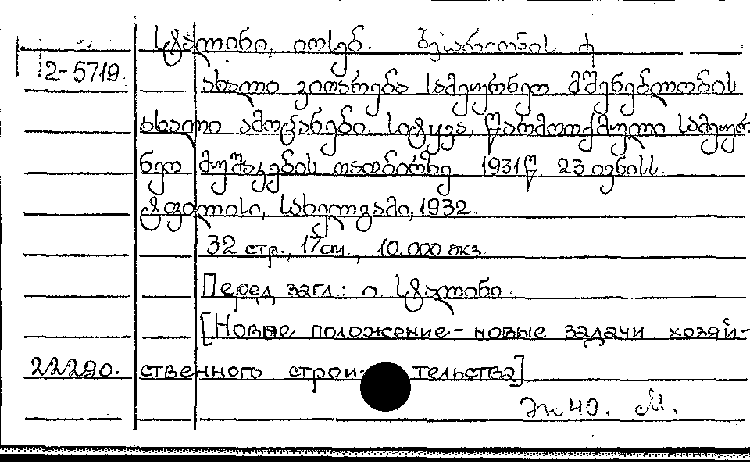 სტალინი, იოსებ. ბესარიონის ძ
2-5719.
ახალი ვითარება სამეურნეო მშენებლობის
ახალი ამოცანები სიტყვა, წარმოთქმული სამეურ
ნეო მუშაკების თათბირზე 1931წ 23 ივნისს.
ტფილისი, სახელგამი, 1932.
32 стр., 17 см., 10.000 экз.
Перед загл.: ი. სტალინი.
[Новые положение - новые задачи хозяй-
22280. ственного строительства]
Эк 40. М.